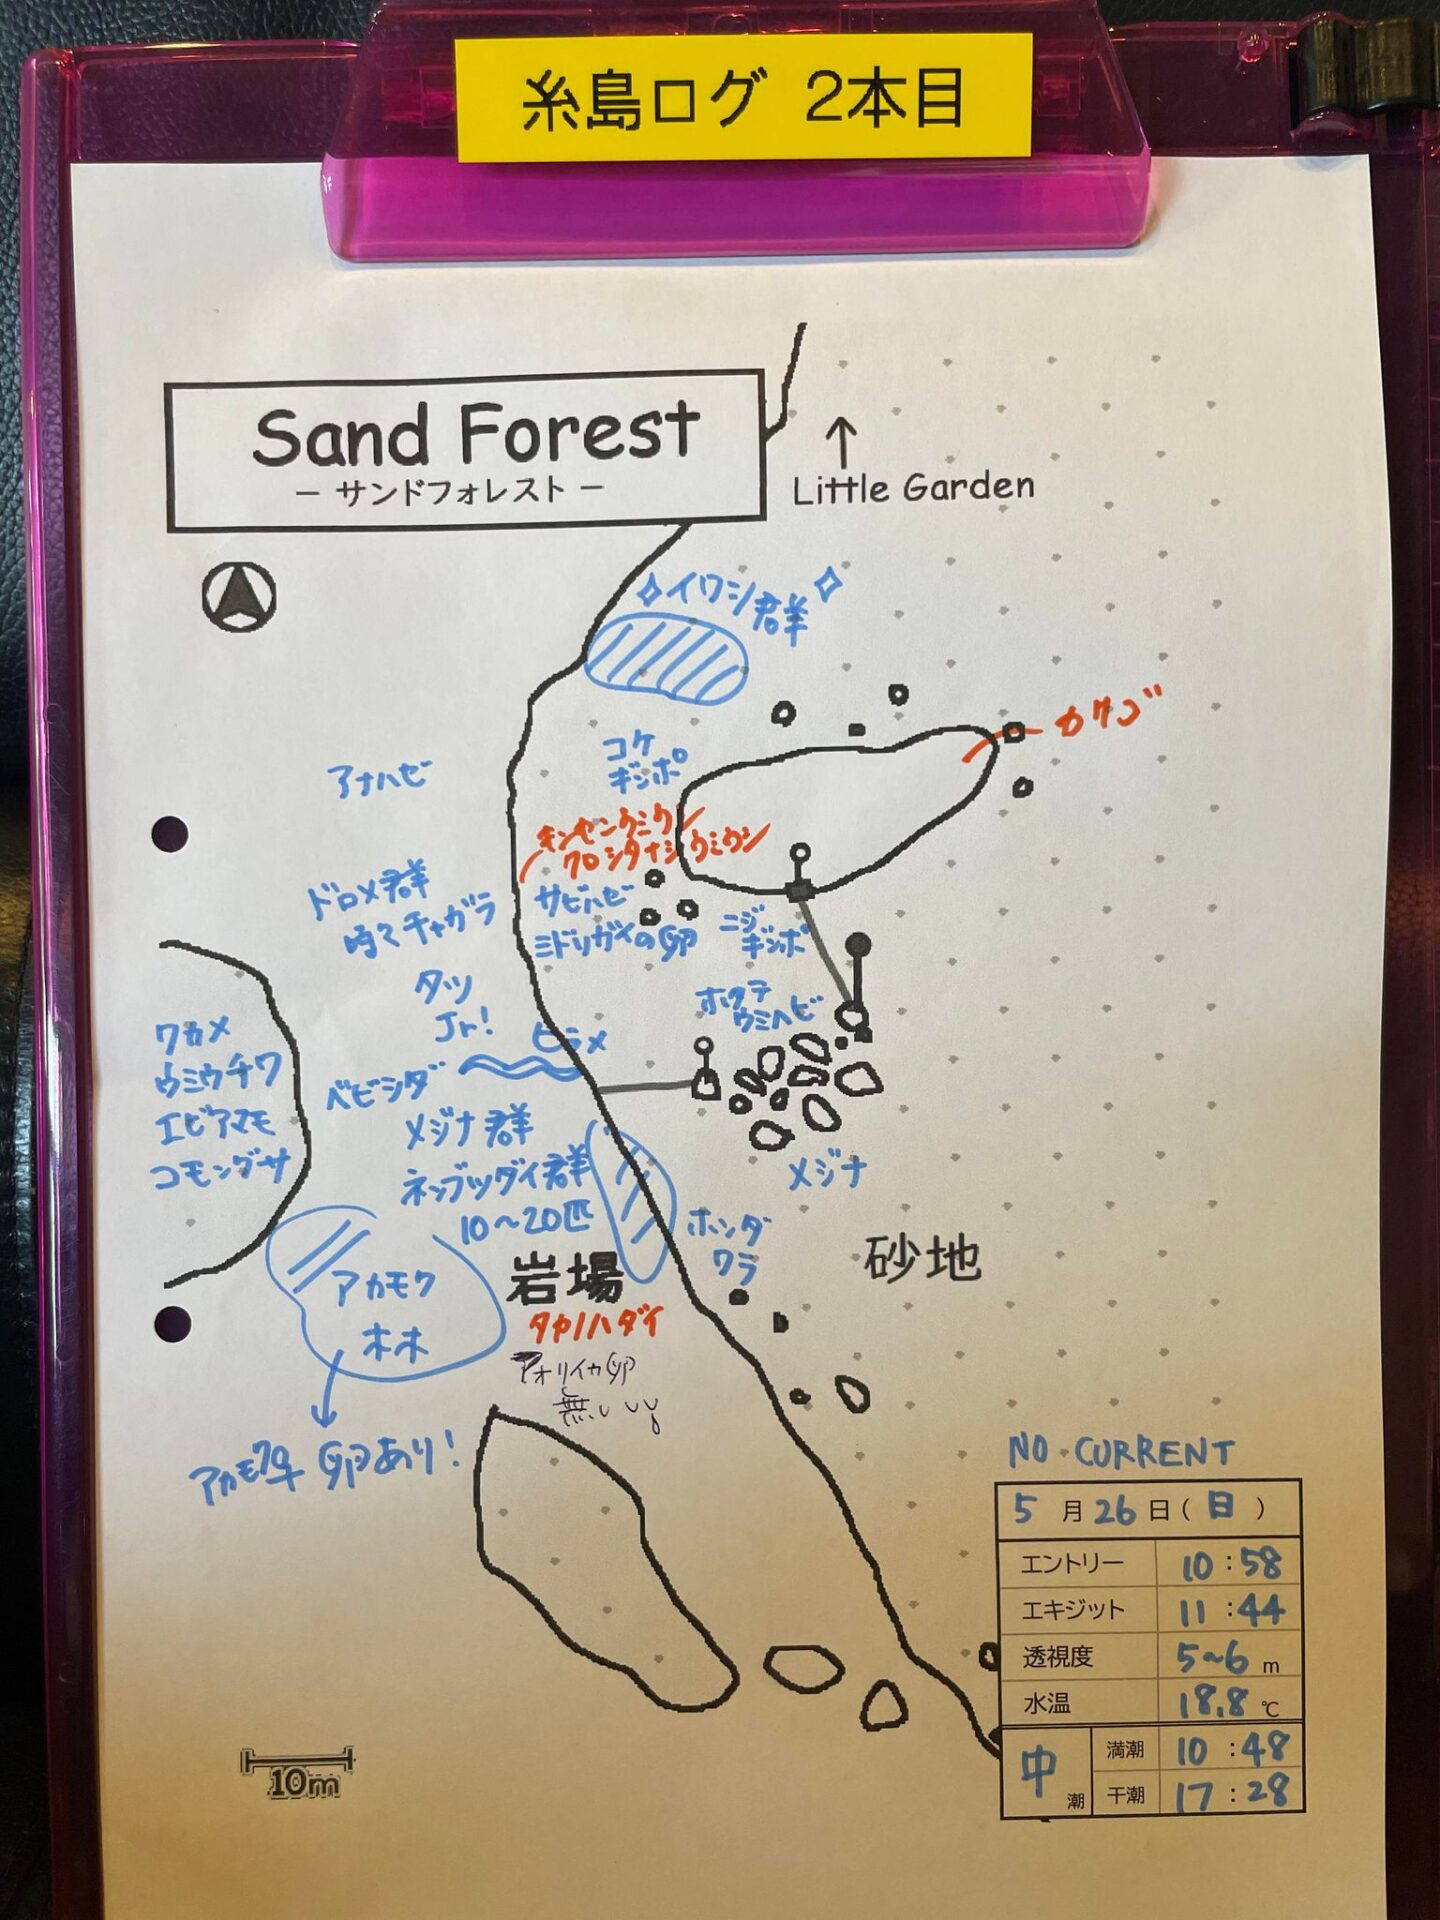 糸島ログ 2本目
Sand Forest
− サンドフォレスト −
↑
Little Garden
イワシ群
カサゴ
コケ
ギンポ
アナハゼ
キンセンウミウシ
クロシタナシウミウシ
サビハゼ
ミドリガイの卵
ニジ
ギンポ
ドロメ群
時々チャガラ
タツ
Jr!
ヒラメ
ホタテ
ウミヘビ
ワカメ
ウミウチワ
エビアマモ
コモングサ
ベビシダ
メジナ群
ネンブツダイ群
10～20匹
メジナ
ホンダ
ワラ
岩場
砂地
タカノハダイ
アオリイカ卵
無い
アカモク
林
卵あり!
NO CURRENT
5月26日(日)
エントリー 10:58
エキジット 11:44
透視度 5~6 m
水温 18.8 ℃
中潮 満潮 10:48
干潮 17:28
10m